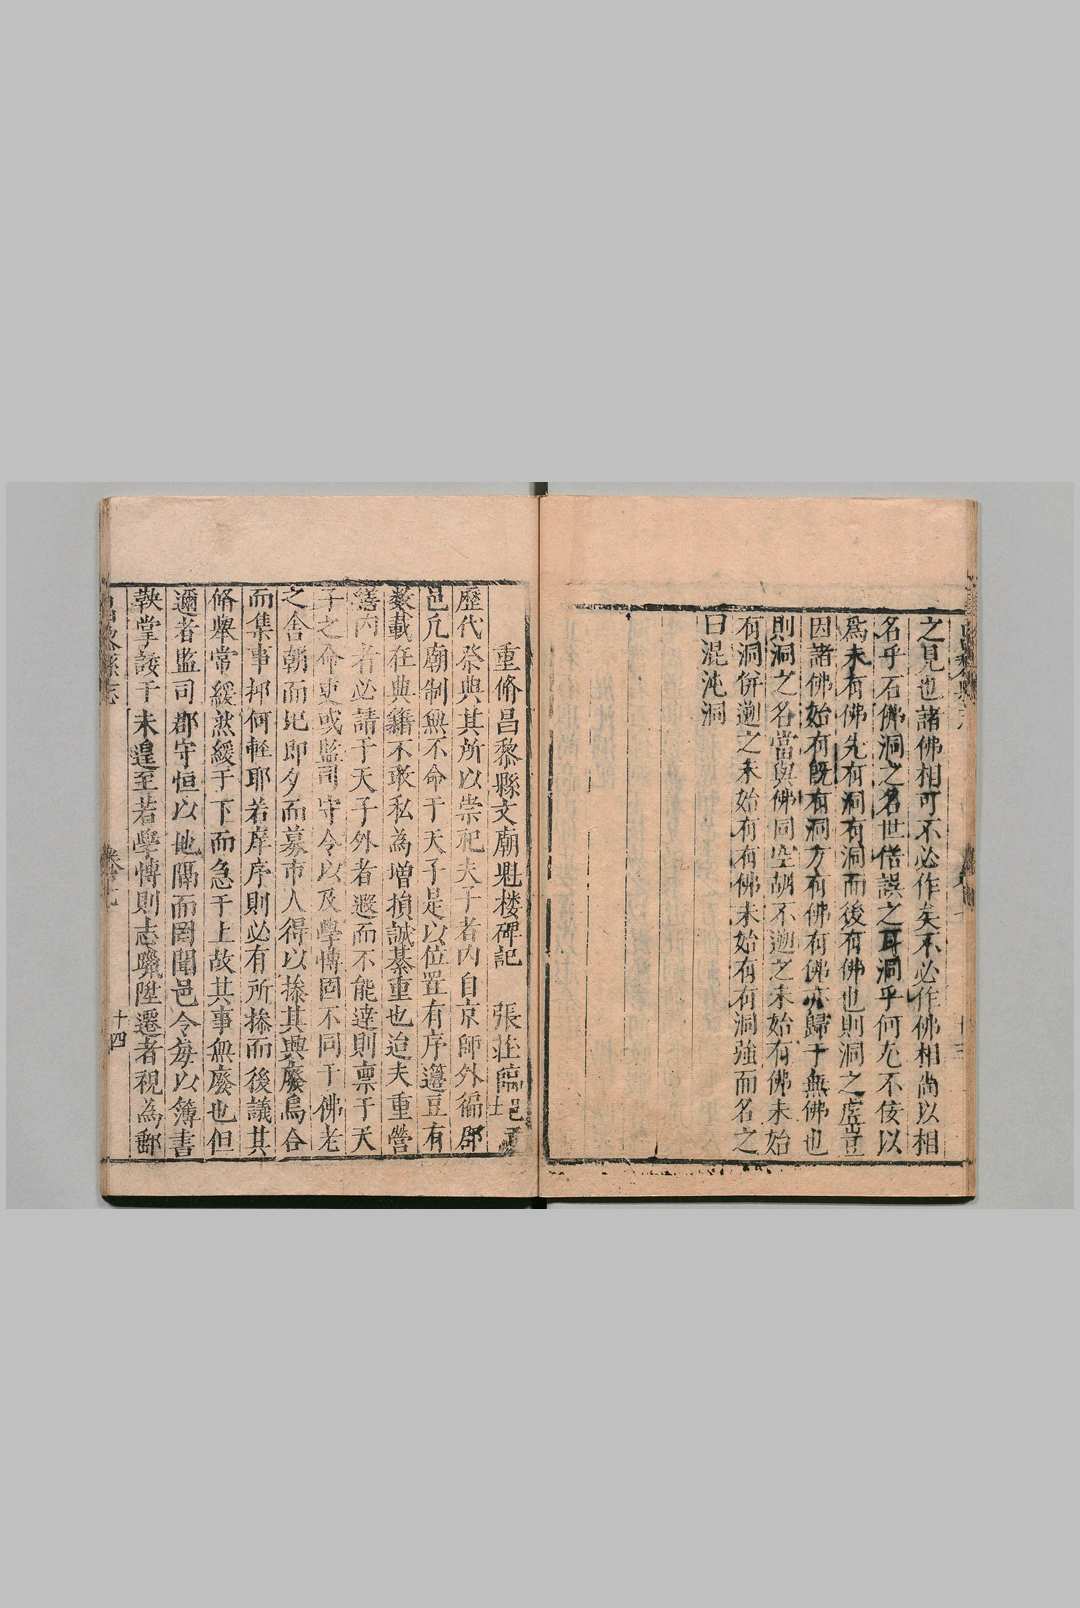 之見也諸佛相可不必作矣不必作佛相尚以相
名乎石佛洞之名世俗誤之耳洞乎何尤不佞以
爲未有佛先有洞有洞而後有佛也則洞之虛豈
因諸佛始有旣有洞方有佛有佛亦歸于無佛也
則洞之名當與佛同空胡不遡之未始有佛未始
有洞併遡之未始有有佛未始有有洞強而名之
曰混沌洞
重脩昌黎縣文廟魁楼碑記 張莊臨邑
歷代祭典其所以崇祀夫子者内自京師外徧郡
邑凢廟制無不命于天子是以位置有序籩豆有
数載在典籍不敢私為增損誠綦重也迨夫重營
葺内者必請于天子外者遐而不能達則禀于天
子之命吏或監司守令以及學博固不同于佛老
之舍朝而圯即夕而募市人得以掺其興廢烏合
而集事抑何輕耶若庠序則必有所掺而後議其
脩舉常緩然緩于下而急于上故其事無廢也但
邇者監司郡守恒以地隔而罔聞邑令每以簿書
鞅掌諉于未遑至若學博則志躐陞遷者視為郵
十四